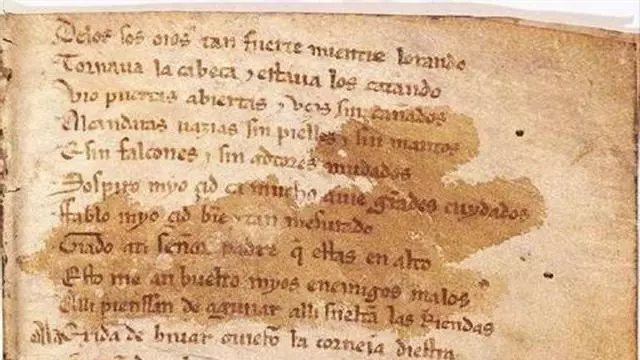 De los sos oios tan fuerte mientre lorando
Tornaua la cabeça y estaua los catando
Vio puertas abiertas y vços sin cañados
Alcandaras uazias sin pielles y sin mantos
E sin falcones y sin adtores mudados
Sospiro myo çid ca mucho auie grãdes cuydados
Ffablo myo çid bien y tan mesurado
Grado ati señor padre q̃ estas en alto
Esto me an buelto myos enemigos malos
Alli pienssan de aguiiar alli sueltã las Riendas
Ala exida de biuar ouierõ la corneia diestra